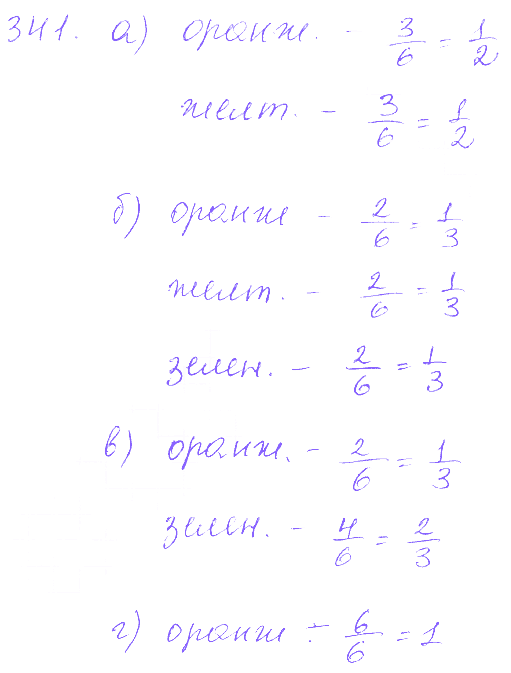 341. а) оранж. - 3/6 = 1/2
желт. - 3/6 = 1/2
б) оранж - 2/6 = 1/3
желт. - 2/6 = 1/3
зелен. - 2/6 = 1/3
в) оранж. - 2/6 = 1/3
зелен. - 4/6 = 2/3
г) оранж - 6/6 = 1